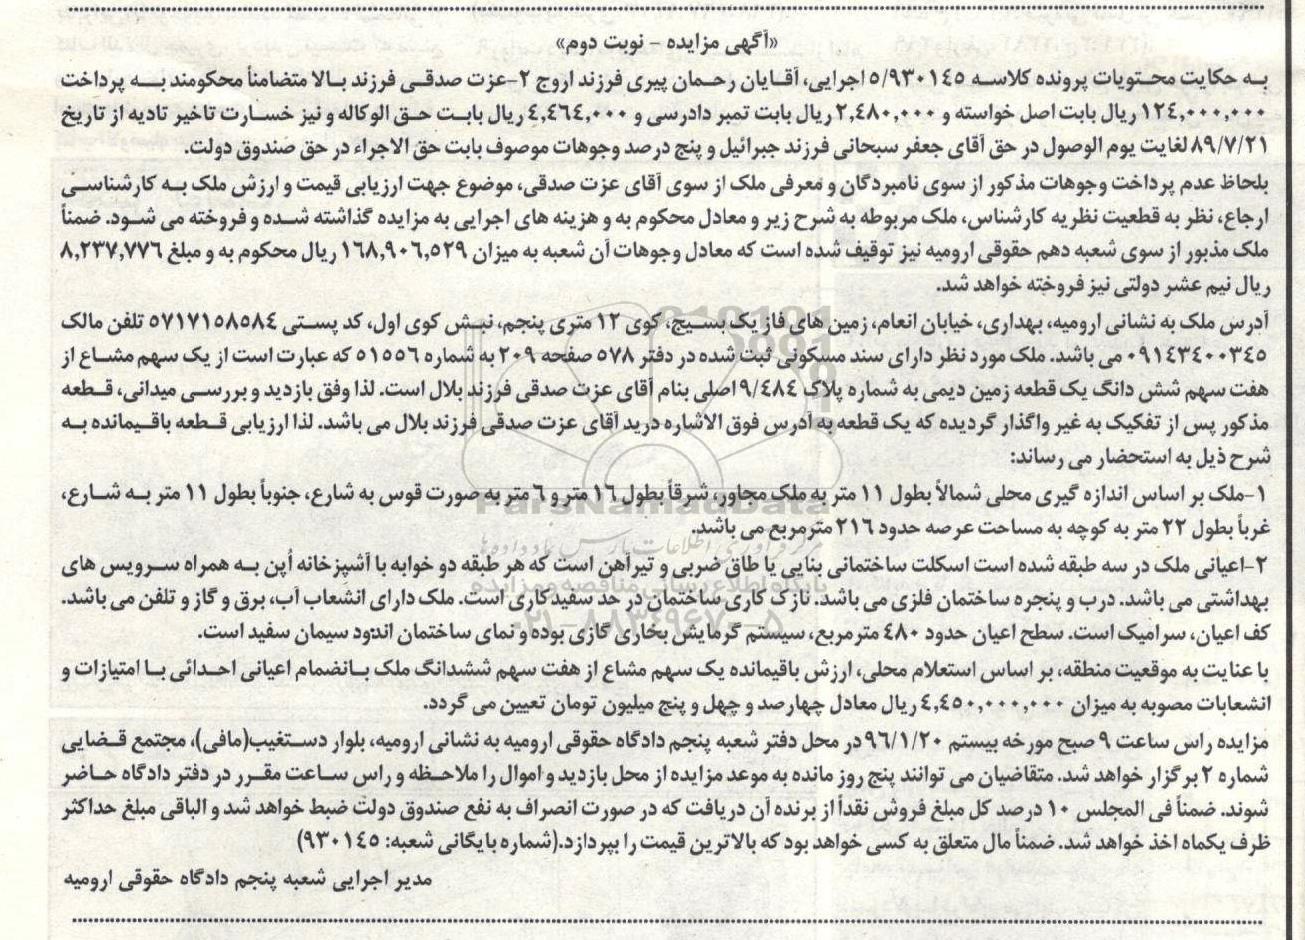 «آگهی مزایده - نوبت دوم»
به حکایت محتویات پرونده کلاسه ٥/٩٣٠١٤٥ اجرایی، آقایان رحمان پیری فرزند اروج ٢-عزت صدقی فرزند بالا متضامناً محکومند به پرداخت
١٢٤,٠٠٠,٠٠٠ ریال بابت اصل خواسته و ٢,٤٨٠,٠٠٠ ریال بابت تمبر دادرسی و ٤,٤٦٤,٠٠٠ ریال بابت حق الوکاله و نیز خسارت تاخیر تادیه از تاریخ
٨٩/٧/٢١ لغایت یوم الوصول در حق آقای جعفر سبحانی فرزند جبرائیل و پنج درصد وجوهات موصوف بابت حق الاجراء در حق صندوق دولت.
بلحاظ عدم پرداخت وجوهات مذکور از سوی نامبردگان و معرفی ملک از سوی آقای عزت صدقی، موضوع جهت ارزیابی قیمت و ارزش ملک به کارشناسی
ارجاع، نظر به قطعیت نظریه کارشناس، ملک مربوطه به شرح زیر و معادل محکوم به و هزینه های اجرایی به مزایده گذاشته شده و فروخته می شود. ضمناً
ملک مذبور از سوی شعبه دهم حقوقی ارومیه نیز توقیف شده است که معادل وجوهات آن شعبه به میزان ١٦٨,٩٠٦,٥٢٩ ریال محکوم به و مبلغ ٨,٢٣٧,٧٧٦
ریال نیم عشر دولتی نیز فروخته خواهد شد.
آدرس ملک به نشانی ارومیه، بهداری، خیابان انعام، زمین های فاز یک بسیج، کوی ١٢ متری پنجم، نبش کوی اول، کد پستی ٥٧١٧١٥٨٥٨٤ تلفن مالک
٠٩١٤٣٤٠٠٣٤٥ می باشد. ملک مورد نظر دارای سند مسکونی ثبت شده در دفتر ٥٧٨ صفحه ٢٠٩ به شماره ٥١٥٥٦ که عبارت است از یک سهم مشاع از
هفت سهم شش دانگ یک قطعه زمین دیمی به شماره پلاک ٩/٤٨٤ اصلی بنام آقای عزت صدقی فرزند بلال است. لذا وفق بازدید و بررسی میدانی، قطعه
مذکور پس از تفکیک به غیر واگذار گردیده که یک قطعه به آدرس فوق الاشاره درید آقای عزت صدقی فرزند بلال می باشد. لذا ارزیابی قطعه باقیمانده به
شرح ذیل به استحضار می رساند:
١-ملک بر اساس اندازه گیری محلی شمالاً بطول ١١ متر به ملک مجاور، شرقاً بطول ١٦ متر و ٦ متر به صورت قوس به شارع، جنوباً بطول ١١ متر به شارع،
غرباً بطول ٢٢ متر به کوچه به مساحت عرصه حدود ٢١٦ مترمربع می باشد.
٢-اعیانی ملک در سه طبقه شده است اسکلت ساختمانی بنایی با طاق ضربی و تیرآهن است که هر طبقه دو خوابه با آشپزخانه اُپن به همراه سرویس های
بهداشتی می باشد. درب و پنجره ساختمان فلزی می باشد. نازک کاری ساختمان در حد سفیدکاری است. ملک دارای انشعاب آب، برق و گاز و تلفن می باشد.
کف اعیان، سرامیک است. سطح اعیان حدود ٤٨٠ مترمربع، سیستم گرمایش بخاری گازی بوده و نمای ساختمان اندود سیمان سفید است.
با عنایت به موقعیت منطقه، بر اساس استعلام محلی، ارزش باقیمانده یک سهم مشاع از هفت سهم ششدانگ ملک بانضمام اعیانی احداثی با امتیازات و
انشعابات مصوبه به میزان ٤,٤٥٠,٠٠٠,٠٠٠ ریال معادل چهارصد و چهل و پنج میلیون تومان تعیین می گردد.
مزایده راس ساعت ٩ صبح مورخه بیستم ٩٦/١/٢٠ در محل دفتر شعبه پنجم دادگاه حقوقی ارومیه به نشانی ارومیه، بلوار دستغیب(مافی)، مجتمع قضایی
شماره ٢ برگزار خواهد شد. متقاضیان می توانند پنج روز مانده به موعد مزایده از محل بازدید و اموال را ملاحظه و راس ساعت مقرر در دفتر دادگاه حاضر
شوند. ضمناً فی المجلس ١٠ درصد کل مبلغ فروش نقداً از برنده آن دریافت که در صورت انصراف به نفع صندوق دولت ضبط خواهد شد و الباقی مبلغ حداکثر
ظرف یکماه اخذ خواهد شد. ضمناً مال متعلق به کسی خواهد بود که بالاترین قیمت را بپردازد.(شماره بایگانی شعبه: ٩٣٠١٤٥)
مدیر اجرایی شعبه پنجم دادگاه حقوقی ارومیه
ParsNamadData
پایگاه اطلاع رسانی مناقصه و مزایده
٠٢١-٨٨٣٤٩٦٧٠-٥